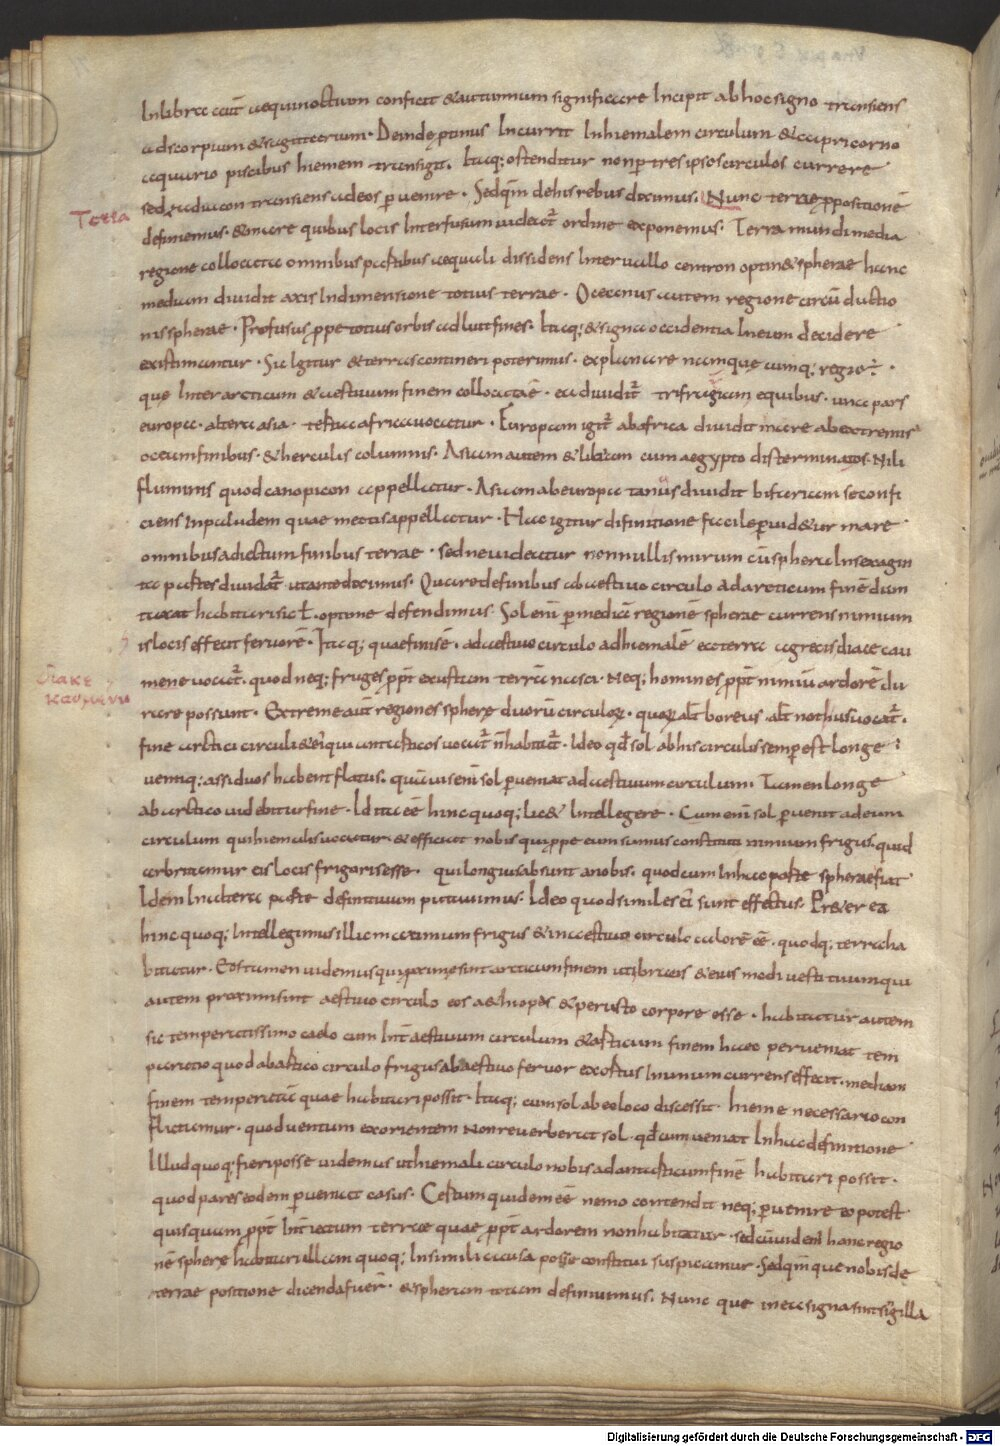 In libra cum aequinoctium conficit & autumnum significare Incipit ab hoc signo transiens
ad scorpium & sagittarium. Deinde ptinus Incurrit In hiemalem circulum & capricorno
aquario piscibus hiemem transigit. Itaq; ostenditur non p tres ipsos circulos currere
sed zadiacon transiens ad eos puenire. Sed qm de his rebus diximus. Nunc terrae ppositionē
Terra
definiemus. & mare quibus locis Interfusum uideat᷑ ordine exponemus. Terra mundi media
regione collocata omnibus partibus aequali dissidens Interuallo centron optin& spherae hanc
mediam diuidit axis In dimensione totius terrae. Oceanus autem regione circū ductio
nis spherae. Profusus ppe totius orbis adluit fines. Itaq; & signa occidentia In eum decidere
existimantur. Sic Igitur & terras contineri poterimus. explanare nam que cumq; regio ÷.
que Inter arcticum & aestiuum finem collocata ē. ea diuidit᷑ trifragiam equibus. una pars
europa. altera asia. tertia africa uocatur. Europam igit᷑ ab africa diuidit mare ab extremis
oceani finibus. & herculis columnis. Asiam autem & libiam cum aegypto disterminat os. Nili
fluminis quod canopicon appellatur. Asiam ab europa tanais diuidit bifariam se confi
ciens In paludem quae meotis appellatur. Hac igitur difinitione facile puid&ur mare
omnibus adiectum finibus terrae. sed ne uideatur nonnullis mirum cū sphera In sexagin
ta partes diuidat᷑ ut ante diximus. Quare de finibus ab aestiuo circulo ad arcticum finē dum
taxat habitari sic ł. optone defendimus. Sol eni p mediā regionē spherae currens nimium
is locis effecit feruorē. Itaq; quae finis ē. ad aestiuo circulo ad hiemalē ea terra a grecis diacecau
mene uocat᷑. quod neq; fruges ppt exustam terrā nasci. Neq; homines ppt nimiū ardorē du
διακε
καυμενη
rare possunt. Extreme aut regiones sphere duorū circulorum. quorum alt boreus alt nothus uocat᷑.
fine arctici circuli & ei qui antarcticos uocat᷑ n̄ habitat᷑. Ideo qd sol ab his circulis semper est longe
uentiq; assiduos habent flatus. quamuis eni sol pueniat ad aestiuum circulum. Tamen longe
ab arctico uidebitur fine. Id ita eē hinc quoq; lic& Intellegere. Cum eni sol puenit ad eum
circulum qui hiemalis uocatur & efficiat nobis qui ppe eum sumus constituti nimium frigus. quid
arbitramur eis locis frigoris esse qui longius absunt a nobis. quod cum In hac parte spherae fiat
Idem In altera parte definitiuum putauimus. Ideo quod similes ei sunt effectus. Pr&er ea
hinc quoq; Intellegimus illic maximum frigus & in aestiuo circulo calorē eē. quodq; terra ha
bitatur. Eos tamen uidemus qui proxime sint arcticum finem uti bracis & eius modi uestitu um qui
autem proximi sint aestiuo circulo eos a&hiopes & perusto corpore esse. habitatur autem
sic temperatissimo caelo cum Int aestiuum circulum & arcticum finem haec perueniat tem
paratio quod ab arctico circulo frigus ab aestiuo feruor exortus In unum currens effecit. mediam
finem temperatā quae habitari possit. Itaq; cum sol ab eo loco discessit. hieme necessario con
flictamur. quod uentum exorientem non reuerberat sol. qd cum ueniat In hac definitione
Illud quoq; fieri posse uidemus ut hiemali circulo nobis ad antarcticum finē habitari possit.
quod pares eodem pueniat casus. Certum quidem eē nemo contendit neq; puenire eo potest
quisquam ppt Interiectum terrae quae ppt ardorem non habitatur. sed cū uideri hanc regio
nē sphere habitari illam quoq; In simili causa posse constitui suspicamur. Sed qm que nobis de
terrae positione dicenda fuer. & spheram totam definiuimus. Nunc que in ea signa sint sigilla